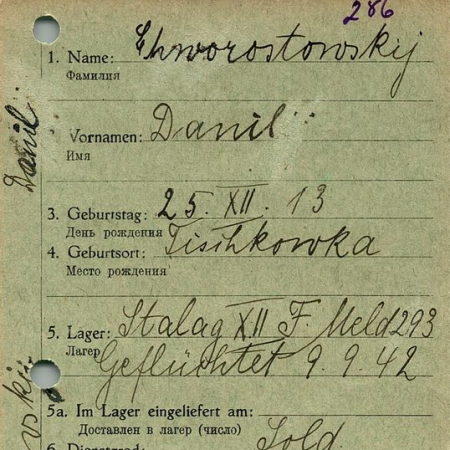 286
1. Name: Chworostowskij
Фамилия
Vornamen: Danil
Имя
3. Geburtstag: 25. XII. 13
День рождения
4. Geburtsort: Tischkowka
Место рождения
5. Lager: Stalag XII F. Meld 293
Лагер Geflüchtet 9.9.42
5a. Im Lager eingeliefert am:
Доставлен в лагер (число)
6. Dienstgrad: Sold.
Danil